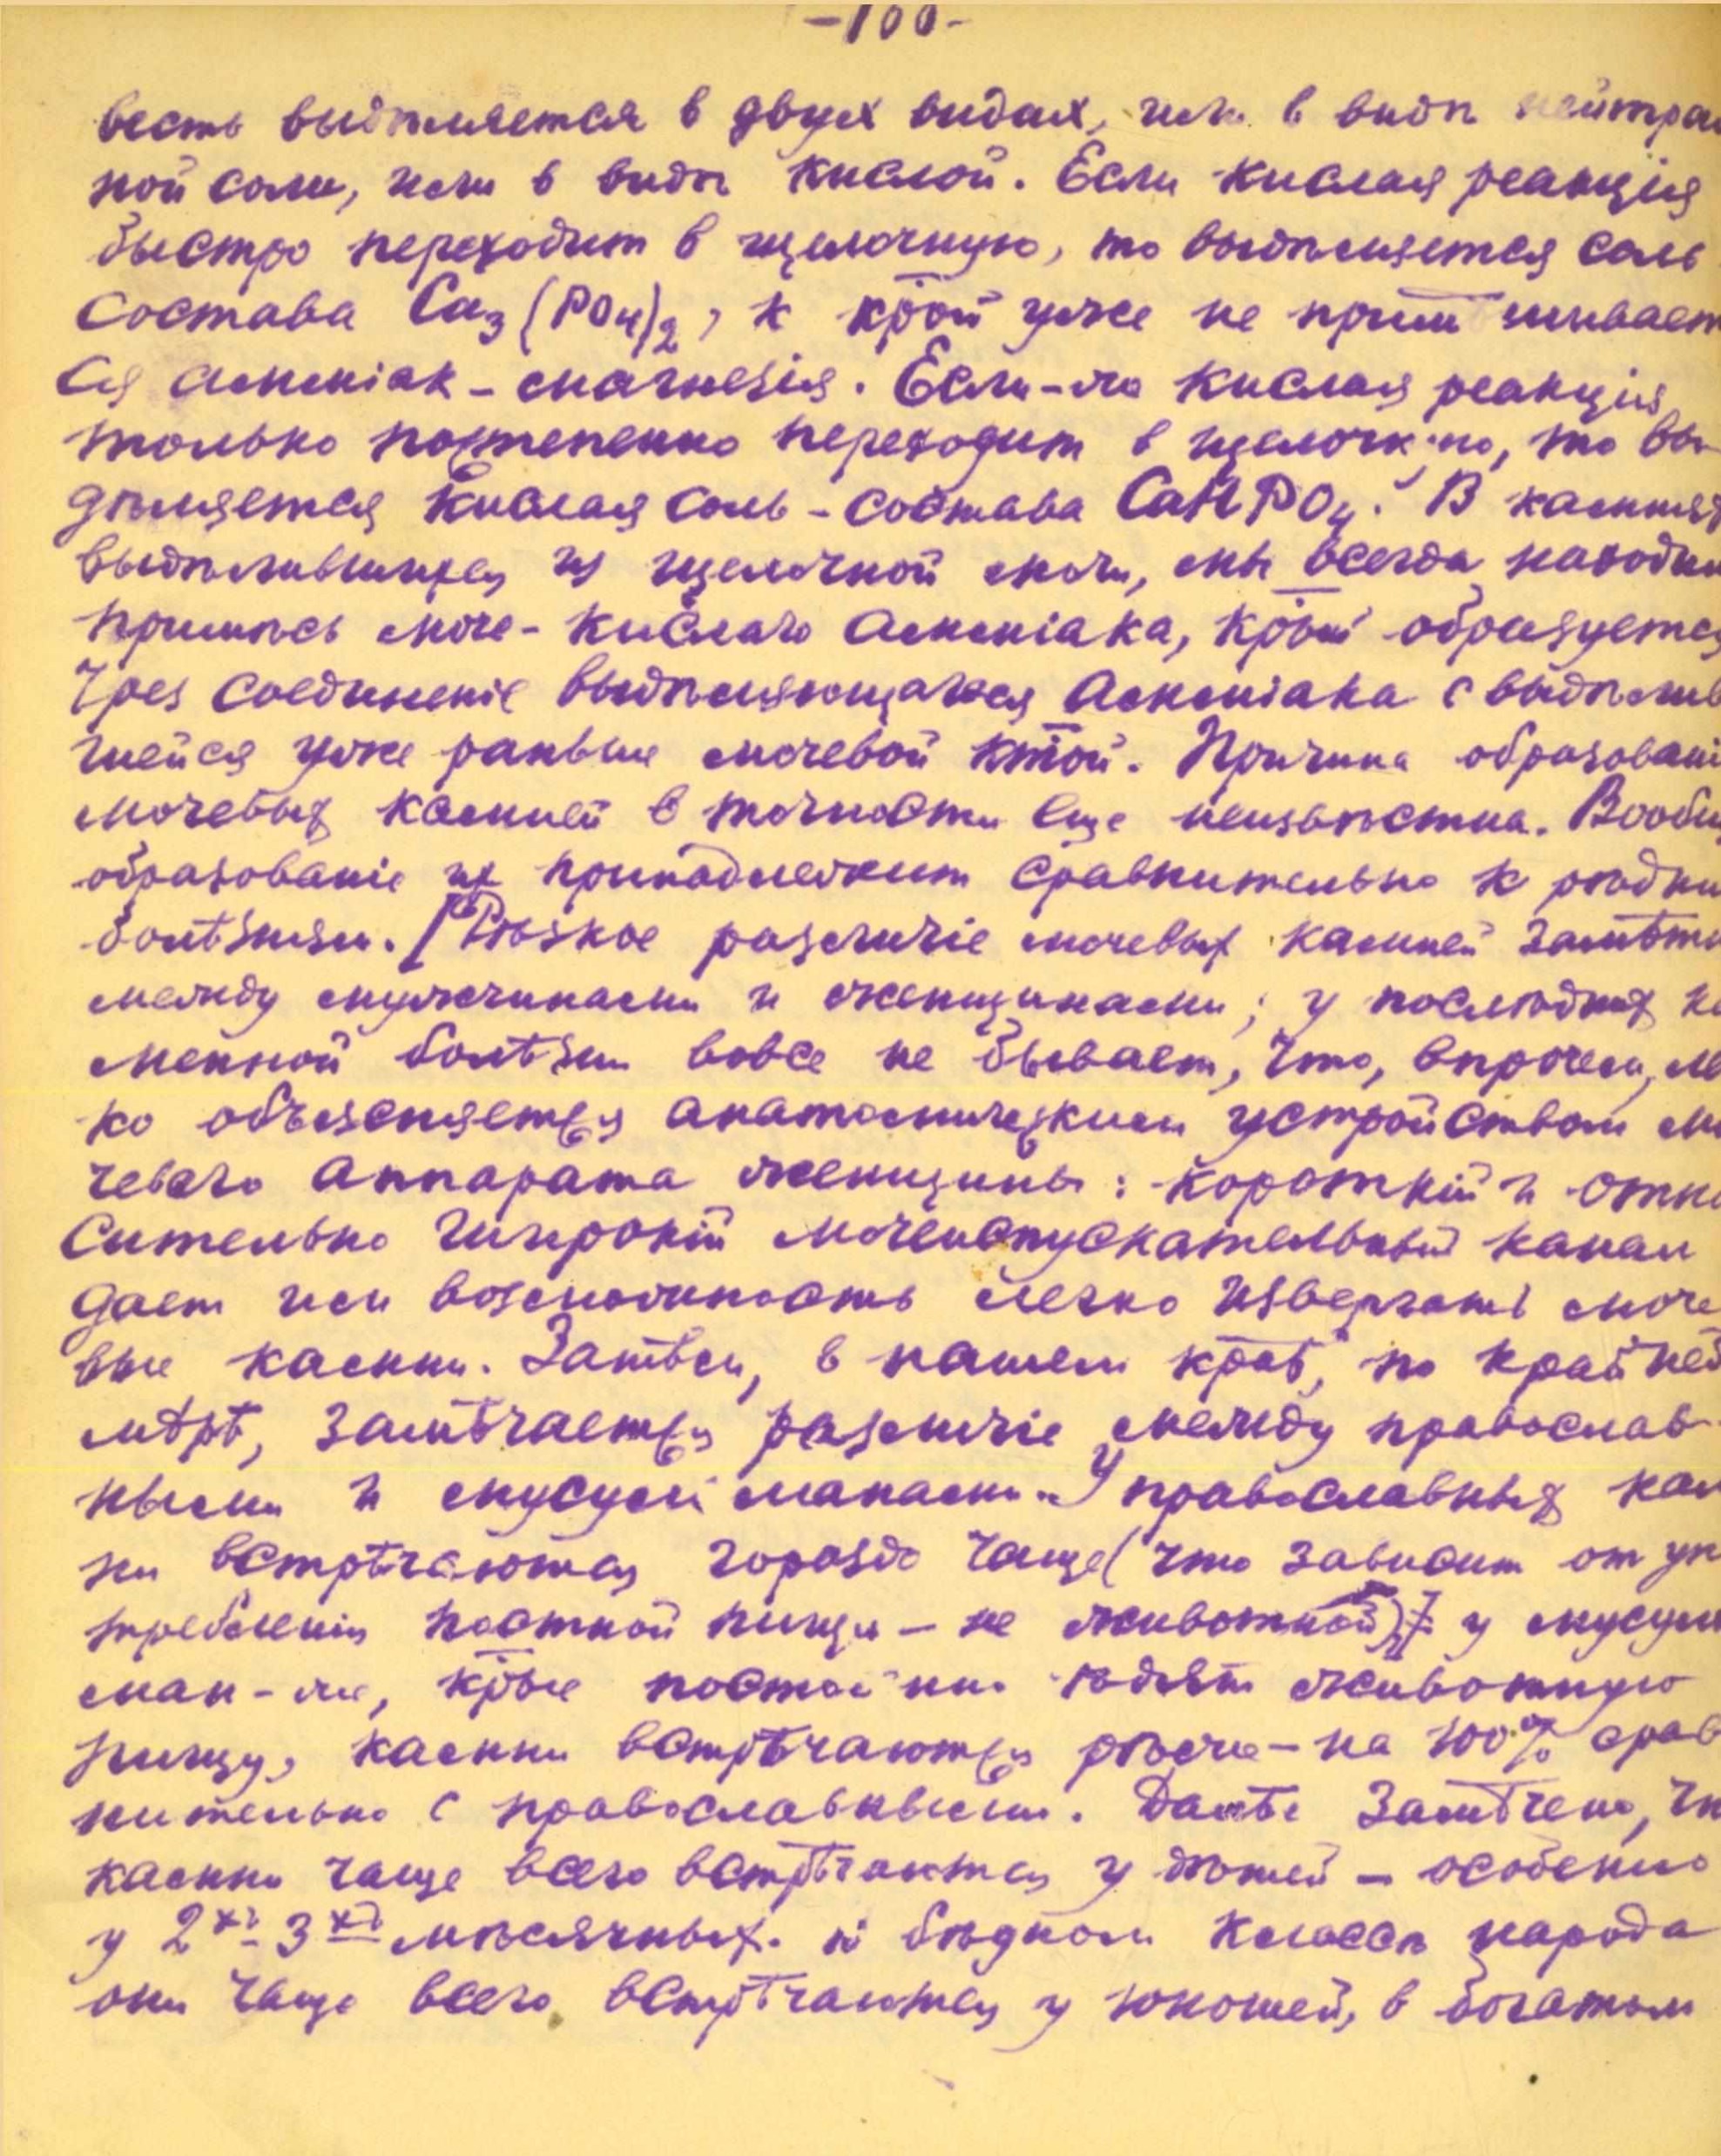 -100-
весть выдѣляется в двух видах, или в видѣ нейтрал
ной соли, или в видѣ кислой. Если кислая реакція
быстро переходит в щелочную, то выдѣляется соль
состава Ca3(PO4)2, к крой уже не примѣшивает
ся аммміак-магнезія. Если-же кислая реакція
только постепенно переходит в щелочную, то вы-
дѣляется кислая соль - состава CaHPO4. В камнях
выдѣлившихся из щелочной мочи, мы всегда находим
примѣсь моче-кислаго амміака, крый образуется
чрез соединеніе выдѣляющагося амміака с выдѣлив
шейся уже раньше мочевой ктой. Причина образовані
мочевых камней в точности еще неизвѣстна. Вообщ
образованіе их принадлежит сравнительно к рѣдким
болѣзням. Рѣзкое различіе мочевых камней замѣтн
между мужчинами и женщинами; у послѣдних ка
менной болѣзни вовсе не бывает, что, впрочем, ле
ко объясняется анатомическим устройством мо
чевого аппарата женщины: короткій и отно
сительно широкій мочеиспускательный канал
дает им возможность легко извергать моче
вые камни. Затѣм, в нашем краѣ, по крайней
мѣрѣ, замѣчается различіе между православ-
ными и мусульманами. У православных кам
ни встрѣчаются гораздо чаще (что зависит от уп
требленія постной пищи - не животной); у мусуль
ман-же, крые постоянно ѣдят животную
пищу, камни встрѣчаются рѣже - на 100% срав
нительно с православными. Далѣе замѣчено, чт
камни чаще всего встрѣчаются у дѣтей - особенно
у 2х-3х мѣсячных. В бѣдном классѣ народа
они чаще всего встрѣчаются у юношей, в богатом